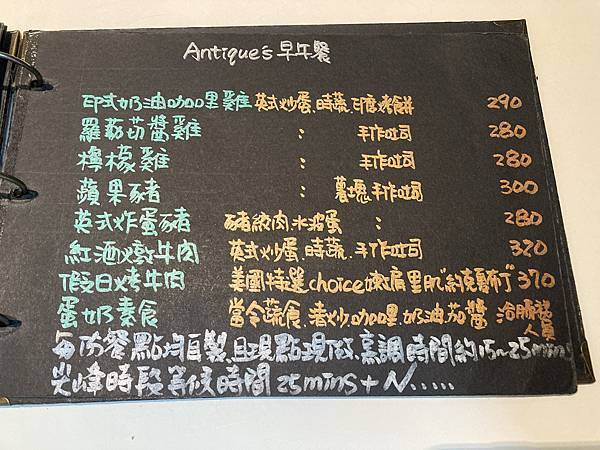 Antique's 早午餐
印式奶油咖哩雞 英式炒蛋、時蔬、印度烤餅 290
羅勒茄醬雞 : 手作吐司 280
檸檬雞 : 手作吐司 280
蘋果豬 : 薯塊、手作吐司 300
英式炸蛋豬 豬絞肉、水波蛋 : 280
紅酒燉牛肉 英式炒蛋、時蔬、手作吐司 320
假日烤牛肉 美國特選choice嫩肩里肌"約克夏布丁" 370
蛋奶素食 當令蔬食、香炒、咖哩、奶油茄醬 洽服務人員
每份餐點均自製、且現點現做、烹調時間約15~25mins
尖峰時段等候時間25mins+N.....